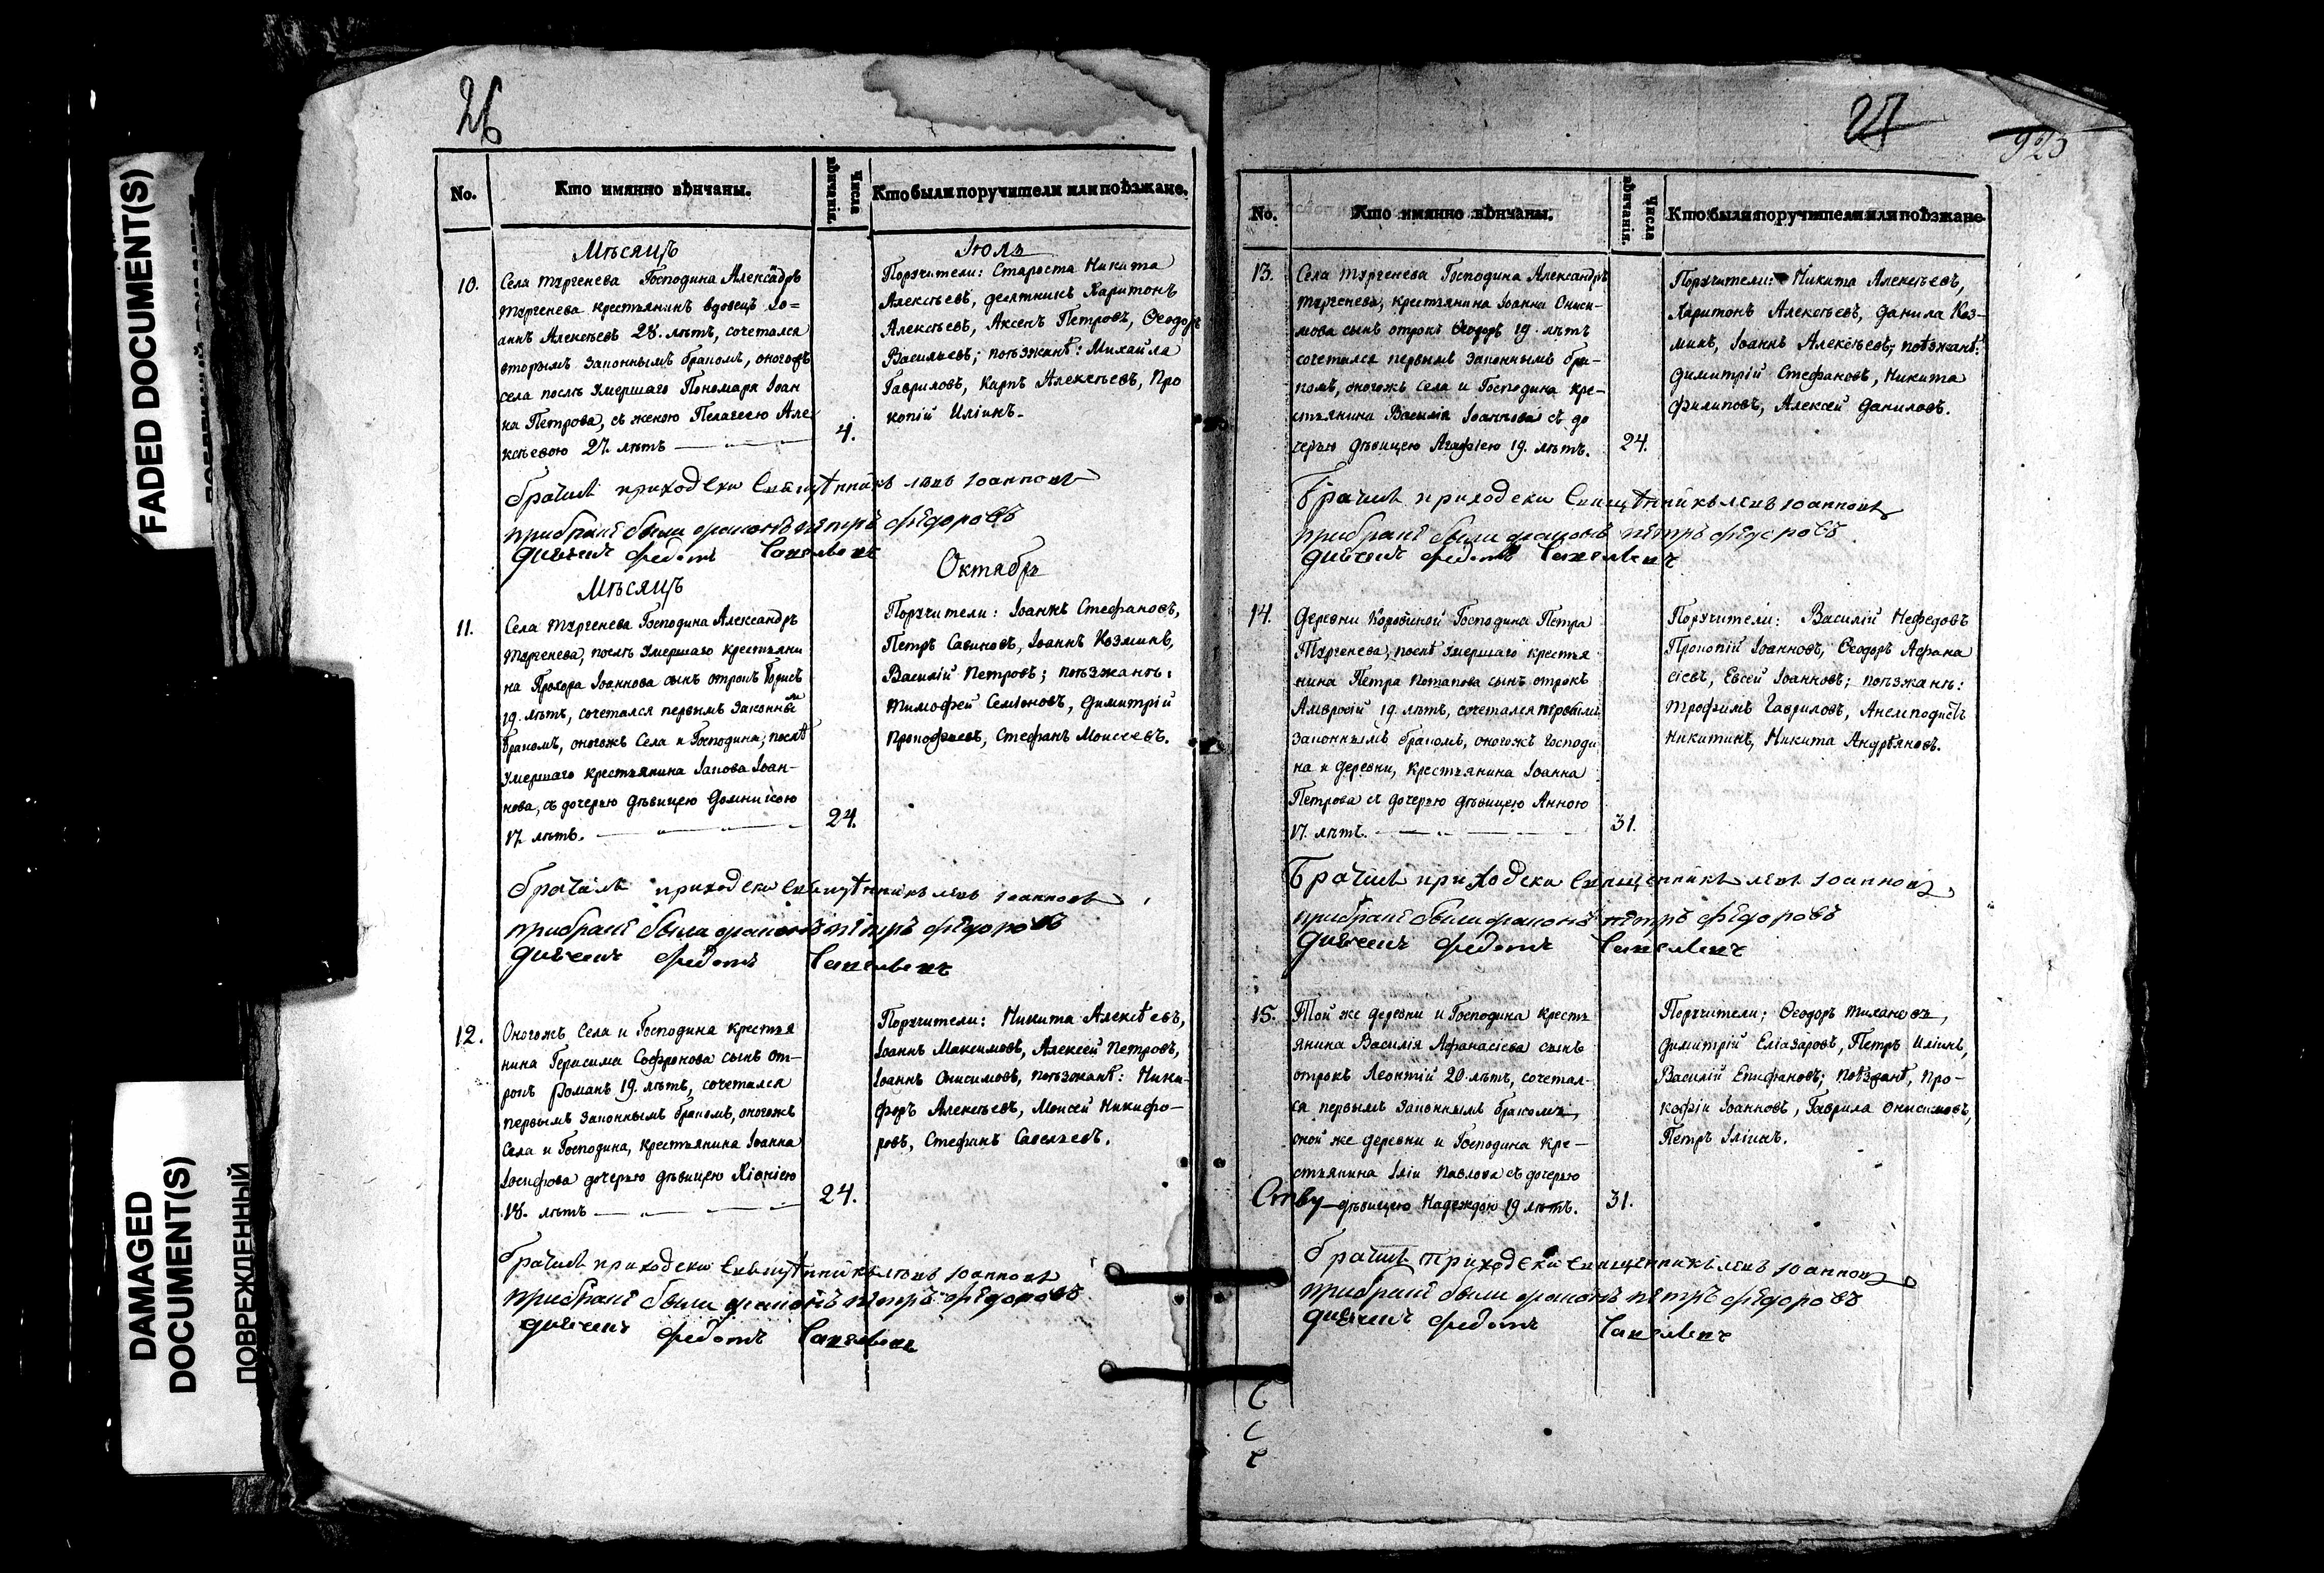 FADED DOCUMENT(S)
DAMAGED
DOCUMENT(S)
ПОВРЕЖДЕННЫЙ
26
No.
Кто имянно вѣнчаны.
Числа
вѣнчанія.
Кто были поручители или поѣзжане.
Мѣсяцъ
Іюль
10.
Села Тургенева Господина Александръ
Тургенева крестьянинъ вдовецъ Іо=
аннъ Алексѣевъ 28. лѣтъ, сочетался
вторымъ законнымъ бракомъ, оногожъ
села послѣ умершаго Пономаря Іоан
на Петрова, съ женою Пелагеею Але
ксѣевою 27. лѣтъ
4.
Поручители: Староста Никита
Алексѣевъ, десятникъ Харитонъ
Алексѣевъ, Аксенъ Петровъ, Ѳеодоръ
Васильевъ; поѣзжанѣ: Михайла
Гавриловъ, Карпъ Алексѣевъ, Про
копій Иліинъ.
приходски левъ Іоанновъ
были петръ фѣдоровъ
федотъ
Мѣсяцъ
Октябрь
11.
Села Тургенева Господина Александръ
Тургенева, послѣ умершаго крестьяни
на Прохора Іоаннова сынъ отрокъ Борисъ
19. лѣтъ, сочетался первымъ законны
мъ
бракомъ, оногожъ Села и Господина, послѣ
умершаго крестьянина Іакова Іоан-
нова, съ дочерью дѣвицею Домникою
17. лѣтъ.
24.
Поручители: Іоаннъ Стефановъ,
Петръ Савиновъ, Іоаннъ Козминъ,
Василій Петровъ; поѣзжанѣ:
Тимофей Семіоновъ, Димитрій
Прокофьевъ, Стефанъ Моисеевъ.
приходски левъ Іоанновъ
были петръ фѣдоровъ
федотъ
12.
Оногожъ Села и Господина крестья
нина Герасима Софронова сынъ от-
рокъ Романъ 19. лѣтъ, сочетался
первымъ законнымъ бракомъ, оногожъ
Села и Господина, крестьянина Іоанна
Іосифова дочерью дѣвицею Хіоніею
18. лѣтъ
24.
Поручители: Никита Алексѣевъ,
Іоаннъ Максимовъ, Алексей Петровъ,
Іоаннъ Онисимовъ, поѣзжанѣ: Ники-
форъ Алексѣевъ, Моисей Никифо-
ровъ, Стефанъ Савельевъ.
приходски левъ Іоанновъ
были петръ фѣдоровъ
федотъ
27
923
No.
Кто имянно вѣнчаны.
Числа
вѣнчанія.
Кто были поручители или поѣзжане
13.
Села Тургенева Господина Александръ
Тургенева, крестьянина Іоанна Ониси-
мова сынъ отрокъ Ѳеодоръ 19. лѣтъ
сочетался первымъ законнымъ бра-
комъ, оногожъ Села и Господина кре-
стьянина Василія Іоаннова съ до
черью дѣвицею Агафіею 19. лѣтъ.
24.
Поручители: Никита Алексѣевъ,
Харитонъ Алексѣевъ, Данила Коз-
минъ, Іоаннъ Алексѣевъ; поѣзжанѣ:
Димитрій Стефановъ, Никита
Филиповъ, Алексей Даниловъ.
приходски левъ Іоанновъ
были петръ фѣдоровъ
федотъ
14.
Деревни Коровиной Господина Петра
Тургенева, послѣ умершаго крестья
нина Петра Потапова сынъ отрокъ
Амвросій 19. лѣтъ, сочетался первымъ
законнымъ бракомъ, оногожъ Господи
на и деревни, крестьянина Іоанна
Петрова съ дочерью дѣвицею Анною
17. лѣтъ.
31.
Поручители: Василій Нефедовъ
Прокопій Іоанновъ, Ѳеодоръ Афана
сіевъ, Евсей Іоанновъ; поѣзжанѣ:
Трофимъ Гавриловъ, Анемподистъ
Никитинъ, Никита Андрѣяновъ.
приходски левъ Іоанновъ
были петръ фѣдоровъ
федотъ
15.
Той же деревни и Господина кресть
янина Василія Афанасіева сынъ
отрокъ Леонтій 20. лѣтъ, сочетал-
ся первымъ законнымъ бракомъ,
оной же деревни и Господина кре-
стьянина Іліи Павлова съ дочерью
дѣвицею Надеждою 19 лѣтъ.
31.
Поручители; Ѳеодоръ Тихановъ,
Димитрій Еліазаровъ, Петръ Иліинъ,
Василій Епифановъ; поѣзжанѣ, Про-
кофіи Іоанновъ, Гаврила Онисимовъ,
Петръ Іліинъ.
приходски левъ Іоанновъ
были петръ фѣдоровъ
федотъ